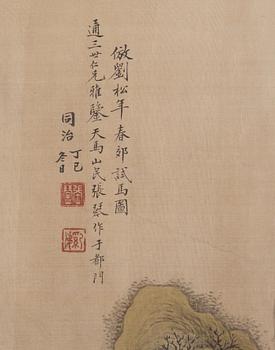 倣劉松年春郊試馬圖
通三世仁兄雅鑒天馬山民張琴作于都門
同治丁巳
冬日